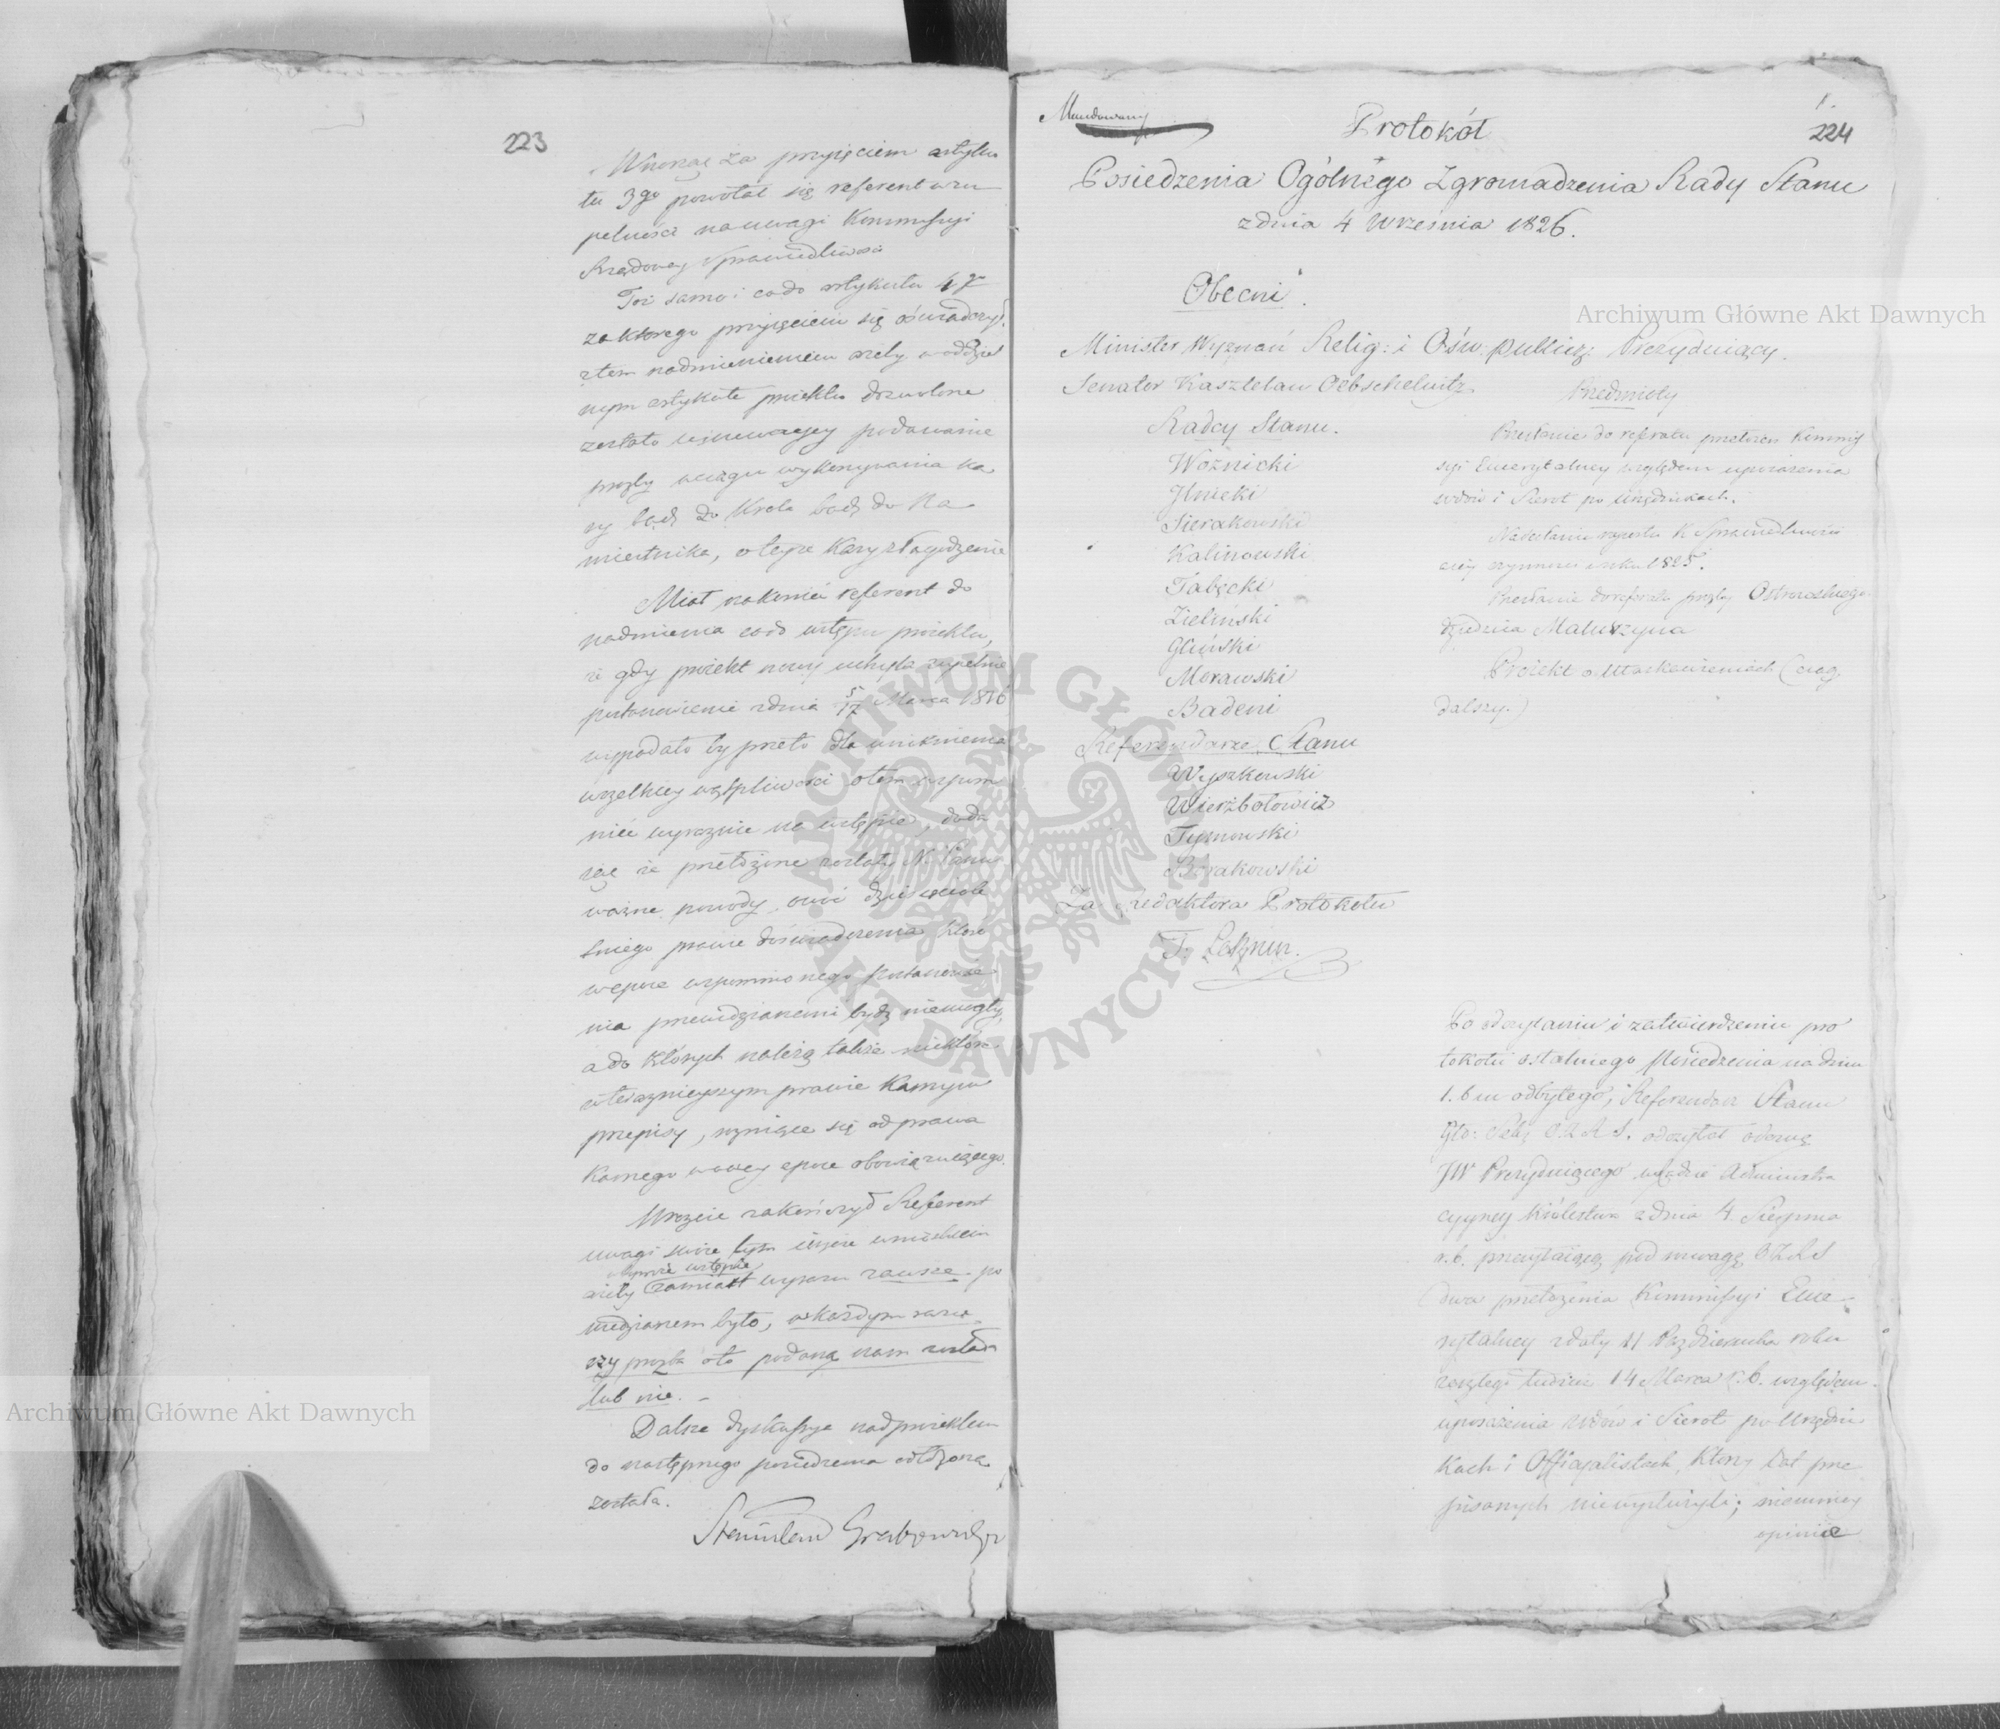 223
Wnosząc za przyjęciem artyku
łu 3go powołał się referent w zu
pełności na uwagi Kommissyi
Rządowey Sprawiedliwości
Toż samo i co do artykułu 4go
za którego przyjęciem się oświadczył,
z tem nadmienieniem ażeby w oddziel
nym artykule projektu dozwolone
zostało podawanie
prozby w ciągu wykonywania ka
ry bądź do Króla bądź do Na
miestnika, o teyże kary złagodzenie
Miał nakoniec referent do
nadmienia co do wstępu projektu,
że gdy projekt nowy uchyla zupełnie
postanowienie z dnia 5/17 Marca 1816
wypadało by przeto dla uniknienia
wszelkiey wątpliwości o tem wspom
nieć wyraźnie na wstępie, doda
jąc że przełożone zostały N. Panu
ważne powody, owoc dziesięciole
tniego prawie doświadczenia które
w epoce wspomnionego postanowie
nia przewidzianemi bydź niemogły,
a do których należą także niektóre
w teraźnieyszym prawie Karnym
przepisy, różniące się od prawa
Karnego w owey epoce obowiązuiącego.
Wreszcie zakończył Referent
uwagi swoie tym ieszcze wnioskiem
ażeby zamiast wyrazu zawsze po
wiedzianem było, w każdym razie
czy prozba o to podaną nam została
lub nie. –
Dalsze dyskussye nad projektem
do następnego posiedzenia odłożone
zostały.
Stanisław Grabowski
Mundowany
Protokół
224
Posiedzenia Ogólnego Zgromadzenia Rady Stanu
z dnia 4 Września 1826.
Obecni.
Minister Wyznań Relig: i Ośw. publicz: Prezyduiący.
Senator Kasztelan Oebschelwitz
Radcy Stanu.
Woźnicki
Hnicki
Sierakowski
Kalinowski
Tabęcki
Zieliński
Gliński
Morawski
Badeni
Referendarze Stanu
Wyszkowski
Wierzbołowicz
Tymowski
Borakowski
Za Redaktora Protokołu
Przedmioty
Przesłanie do referatu przełożeń Kommis
syi Emerytalney względem uposażenia
wdów i Sierot po urzędnikach.
Nadesłanie raportu K Sprawiedliwości
czynności w roku 1825.
Przesłanie do referatu prozby
dziedzica Maluszyna
Projekt o Ułaskawieniach (ciąg
dalszy.)
Po odczytaniu i zatwierdzeniu pro
tokołu ostatniego Posiedzenia na dniu
1. b m odbytego, Referendarz Stanu
O.Z.R.S. odczytał odezwę
JW Prezyduiącego w Radzie Administra
cyiney Królestwa z dnia 4 Sierpnia
r. b. przesyłaiącą pod uwagę O.Z.R.S
dwa przełożenia Kommissyi Eme
rytalney z daty 11 Października roku
zeszłego tudzież 14 Marca r. b. względem
uposażenia wdów i Sierot po Urzędni
kach i Officyalistach, którzy lat prze
pisanych niewysłużyli; niemniey
opinie
Archiwum Główne Akt Dawnych
Archiwum Główne Akt Dawnych
ARCHIWUM GŁÓWNE AKT DAWNYCH